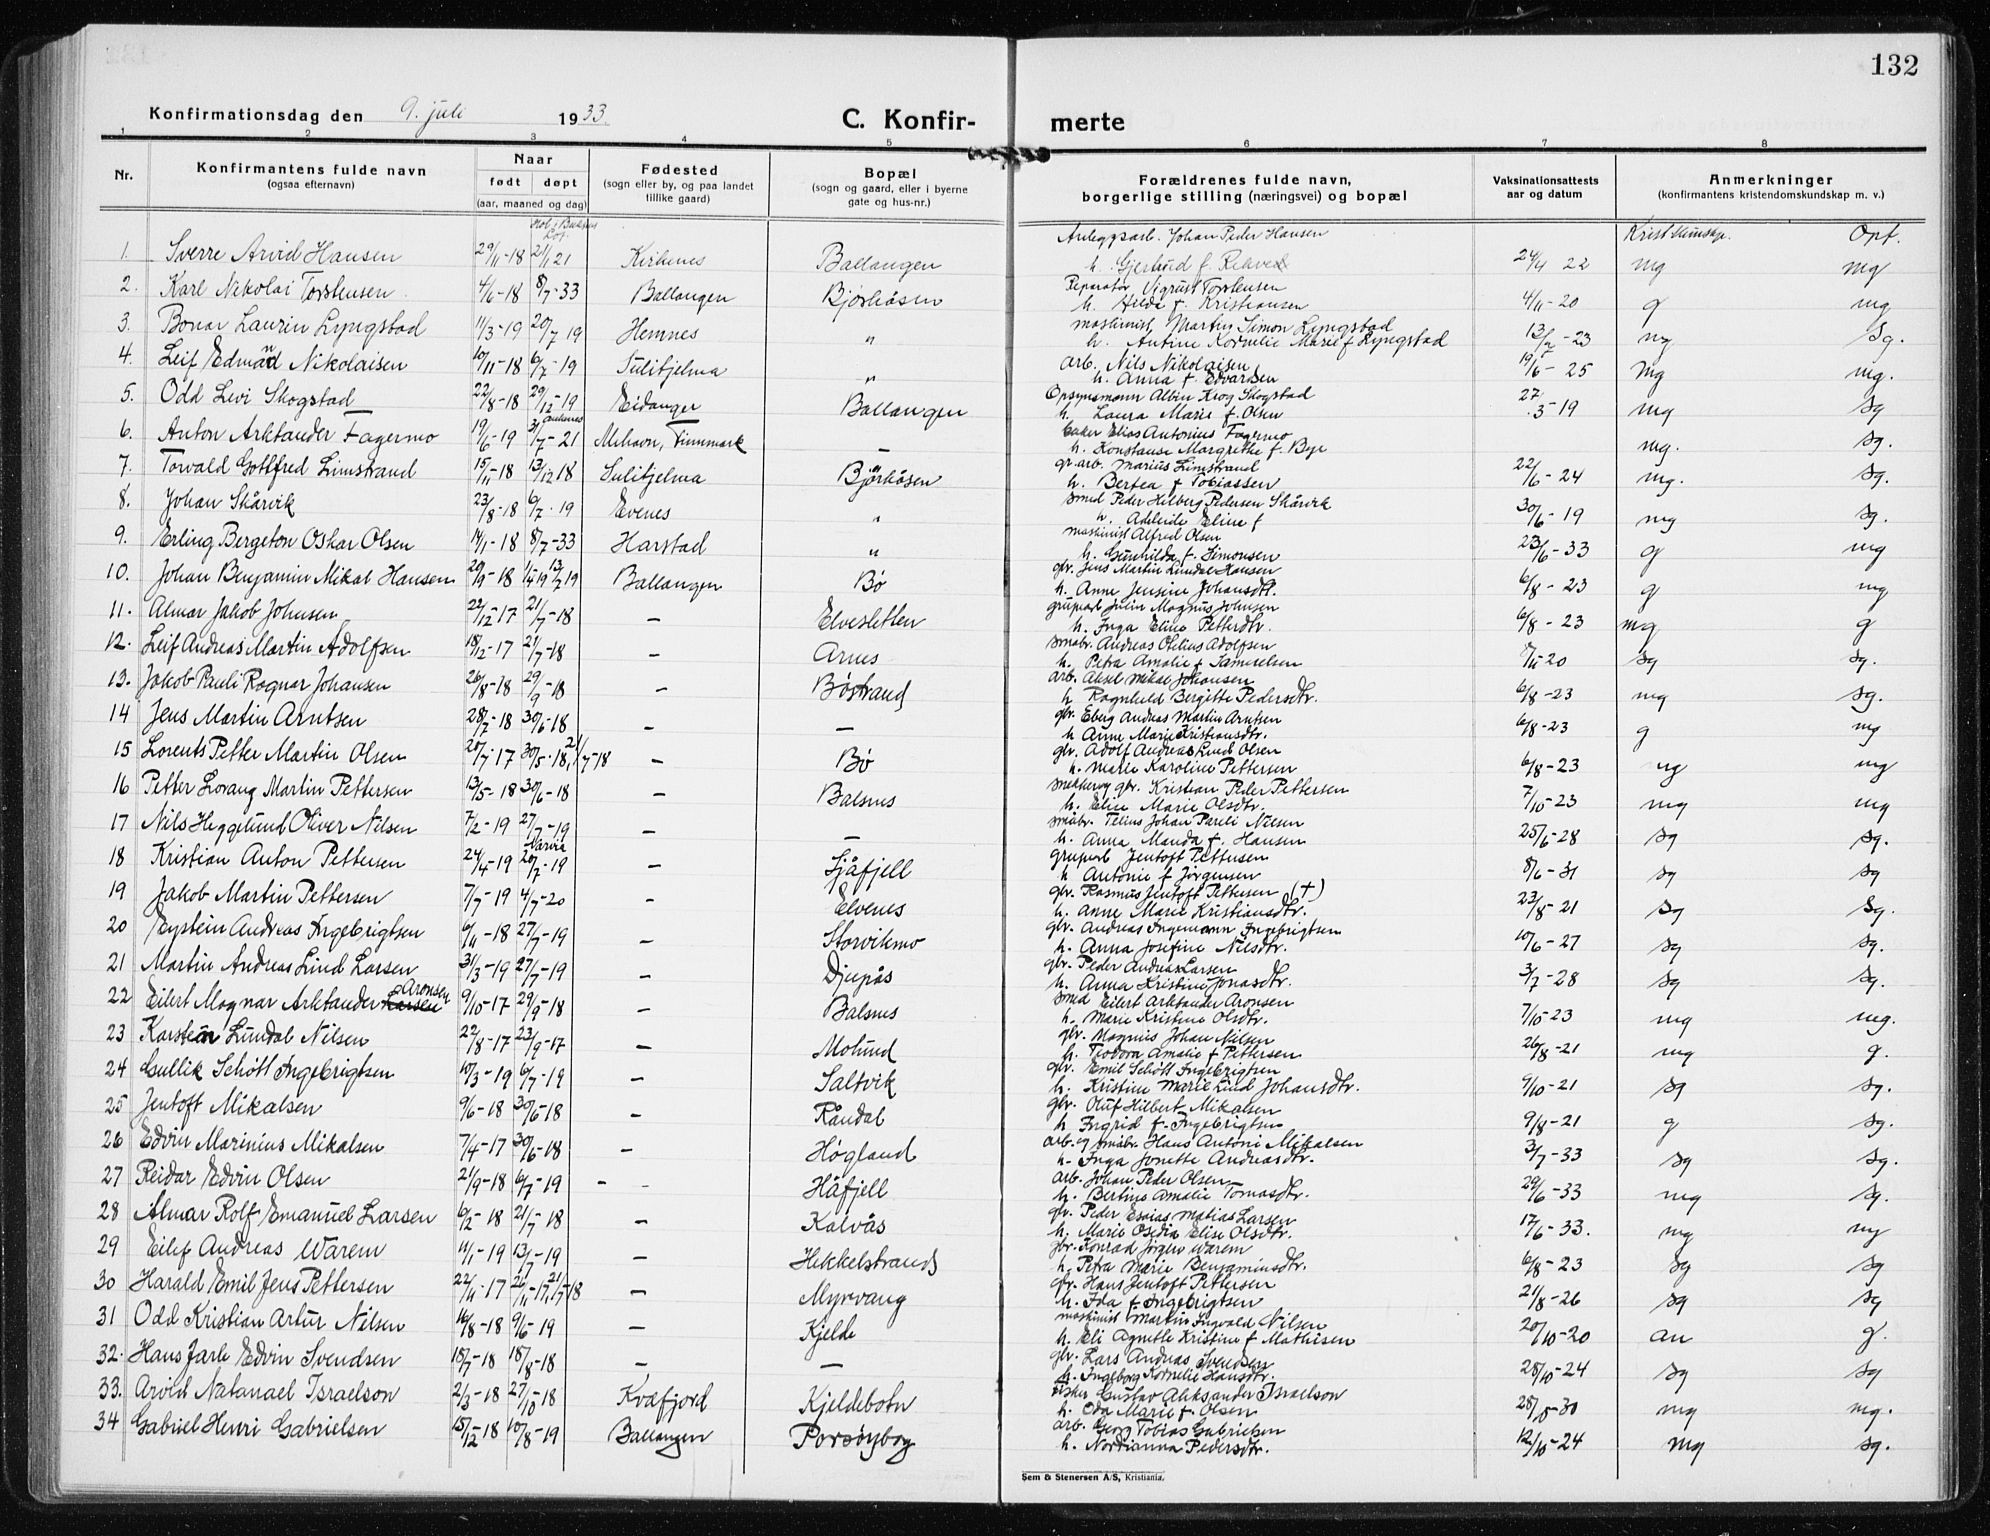 132
Konfirmationsdag den 9. juli 1933.
C. Konfir- merte
1 2 3 4 5 6 7 8
Nr. Konfirmantens fulde navn (ogsaa efternavn) Naar født døpt (aar, maaned og dag) Fødested (sogn eller by, og paa landet tillike gaard) Bopæl (sogn og gaard, eller i byerne gate og hus-nr.) Forældrenes fulde navn, borgerlige stilling (næringsvei) og bopæl Vaksinationsattests aar og datum Anmerkninger (konfirmantens kristendomskundskap m. v.)
Krist kundsk. Opf.
Anleggsarb. Johan Peder Hansen
1. Sverre Arvid Hansen 29/11-18 21/1 21 Kirkenes Ballangen h. Gjertrud f. 24/4 22 mg mg
Reparatør Torstensen
2. Karl Nikolai Torstensen 4/6-18 8/7-33 Ballangen Bjørkåsen h. Hilda f. Kristiansen 4/11-20 g mg
maskinist Martin Simon Lyngstad
3. Bonar Laurin Lyngstad 11/3-19 20/7 19 Hemnes " h. Antine Kornelie Marie f Lyngstad 13/2-23 mg sg.
arb. Nils Nikolaisen
4. Leif Edmann Nikolaisen 10/11-18 6/7-19 Sulitjelma " h. Anna f. Edvardsen 19/6-25 mg mg.
Opsynsmann Albin Krog Skogstad
5. Odd Levi Skogstad 22/8-18 29/12-19 Eidanger Ballangen h. Laura Marie f. Olsen 27/3-19 mg sg
Ankenes
baker Elias Antonius Fagermo
6. Anton Arktander Fagermo 19/6-19 31/7-21 Mehavn, Finnmark — h. Konstanse Margrethe f. Bye mg. sg.
gr.arb. Marius Limstrand
7. Torvald Gottfred Limstrand 15/11-18 13/12 18 Sulitjelma Bjørkåsen h. Bertea f Tobiassen 22/6-24 mg. sg.
smed Peder Hilberg Pedersen Skårvik
8. Johan Skårvik 23/8-18 6/7-19 Evenes " h. Adeleide Eline f 30/6-19 mg sg.
maskinist Alfred Olsen
9. Erling Bergeton Oskar Olsen 14/1-18 8/7-33 Harstad " h. Gunhilda f. Simonsen 23/6-33 g mg
gbr. Jens Martin Lundal Hansen
10. Johan Benjamin Mikal Hansen 20/9-18 1/4 19 13/7 19 Ballangen Bø h. Anne Jensine Johansdt. 6/8-23 g mg
grubearb Julin Magnus Johnsen
11. Almar Jakob Johnsen 22/12-17 21/7-18 — Elvesletten h. Inga Eline Pettersdtr. 6/8-23 mg g
småbr. Andreas Otelius Adolfsen
12. Leif Andreas Martin Adolfsen 18/12-17 21/7-18 — Arnes h. Petra Amalie f Samuelsen 8/11-20 sg sg.
arb. Aksel Mikal Johansen
13. Jakob Pauli Ragnar Johansen 26/8-18 29/9-18 — Bøstrand h Ragnhild Bergitte Pedersdtr. 6/8-23 mg sg.
gbr. Eberg Andreas Martin Arntsen
14 Jens Martin Arntsen 28/7-18 30/6-18 — — h Anne Marie Kristiansdtr. 6/8-23 g mg
gbr. Adolf Andreas Lind Olsen
15 Lorents Petter Martin Olsen 20/7-17 30/5-18, 21/7-18 — Bø h. Marie Karoline Pettersen 6/8-23 mg mg
snekker og gbr. Kristian Peder Pettersen
16 Petter Lorang Martin Pettersen 13/5-18 30/6-18 — Balsnes h. Elise Marie Olsdtr. 7/10-23 mg mg
småbr. Telius Johan Pareli Nilsen
17 Nils Heggelund Oliver Nilsen 7/2-19 27/7-19 — — h. Anna Manda f. Hansen 25/6-28 sg sg.
Narvik
grubearb Jentoft Pettersen
18 Kristian Anton Pettersen 24/4-19 20/7-19 — Sjåfjell h Antonie f Jørgensen 8/6-31 sg sg
gbr. Rasmus Jentoft Pettersen (+)
19 Jakob Martin Pettersen 7/7-19 4/7-20 - Elvenes h. Anne Marie Kristiansdtr. 23/8-21 sg sg.
gbr. Andreas Ingemann Ingebrigtsen
20 Eystein Andreas Ingebrigtsen 6/11-18 27/7-19 — Storvikmo h. Anna Josefine Nilsdtr. 10/6-27 sg sg.
gbr. Peder Andreas Larsen
21 Martin Andreas Lind Larsen 31/3-19 27/7-19 — Djupås h. Anna Kristine Jonasdtr. 3/7-28 sg sg.
smed Eilert Arktander Aronsen
22 Eilert Magnar Arktander Larsen Aronsen 9/10-17 29/9-18 — Balsnes h. Marie Kristine Olsdtr. 7/10-23 mg mg.
gbr. Magnus Johan Nilsen
23 Karstein Lundal Nilsen 22/8-17 23/9-17 — Molund h. Teodora Amalie f Pettersen 26/8-21 mg g.
gbr. Emil Schøtt Ingebrigtsen
24 Gullik Schøtt Ingebrigtsen 10/3-19 6/7-19 — Saltvik h. Kristine Marie Lind Johansdtr. 9/10-21 sg sg.
gbr. Oluf Hilbert Mikalsen
25 Jentoft Mikalsen 9/6-18 30/6-18 — Råndal h Ingrid f. Ingebrigtsen 9/8-21 g sg.
arb. og småbr. Hans Antoni Mikalsen
26 Edvin Marinius Mikalsen 7/4-17 30/6-18 — Høgland h. Inga Jonette Andreasdtr. 3/7-33 sg sg.
arb. Johan Peder Olsen
27 Reidar Edvin Olsen 21/9-18 6/7-19 — Håfjell h. Bertine Amalie Tomasdtr. 29/6-33 mg sg.
gbr. Peder Esaias Matias Larsen
28 Almar Rolf Emanuel Larsen 6/2-18 21/7-18 — Kalvås h. Marie Osedia Elise Olsdtr. 17/6-33. mg mg
gbr. Konrad Jørgen Warem
29 Eilef Andreas Warem 11/1-19 13/7-19 — Hekkelstrand h. Petra Marie Benjaminsdtr. 6/8-23 sg sg
gbr. Hans Jentoft Pettersen
30 Harald Emil Jens Pettersen 22/11-17 26/11-17, 21/7-18 — Myrvang h. Ida f. Ingebrigtsen 21/8-26 sg sg
maskinist Martin Ingvald Nilsen
31 Odd Kristian Artur Nilsen 16/8-18 9/6-19 — Kjelde h. Eli Agnette Kristine f Mathisen 20/10-20 an g.
gbr. Lars Andreas Svendsen
32. Hans Jarle Edvin Svendsen 18/7-18 18/8-18 — — h. Ingeborg Kornelie Hansdtr. 28/10-24 sg sg
fisker Gustav Aleksander Israelson
33. Arvid Natanael Israelson 2/3-18 27/10-18 Kvæfjord Kjeldebotn h. Oda Marie f. Olsen 28/5-30 mg mg.
arb. Georg Tobias Gabrielsen
34 Gabriel Henri Gabrielsen 15/12-18 10/8-19 Ballangen Porsøyborg h. Nordianna Pedersdtr. 12/10-24 mg sg.
Sem & Stenersen A/S, Kristiania.